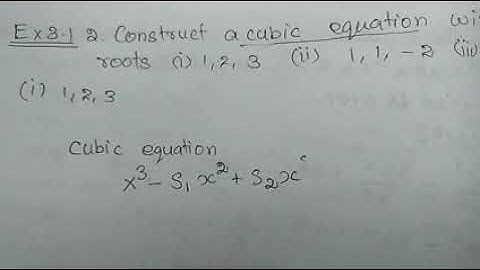 Ex 3.1 2. Construct a cubic equation wi
roots (i) 1, 2, 3 (ii) 1, 1, -2 (iii)
(i) 1, 2, 3
Cubic equation
x³ - S₁ x² + S₂x